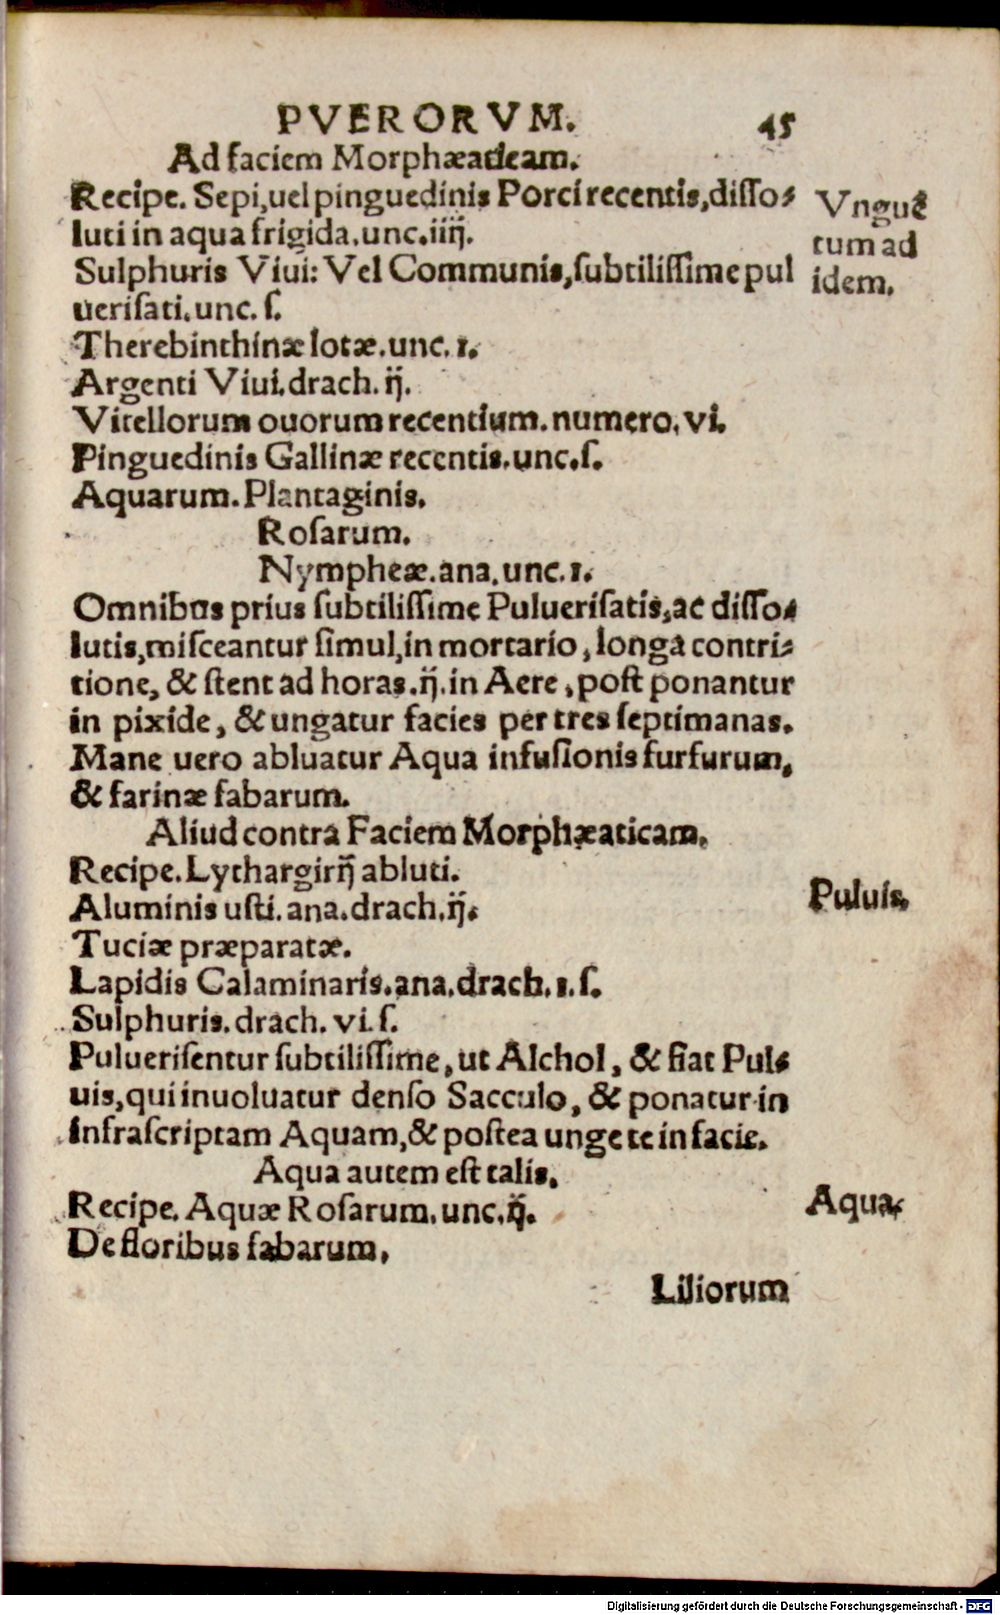 PVERORVM. 45
Ad faciem Morphæaticam.
Recipe. Sepi, uel pinguedinis Porci recentis, disso⸗
luti in aqua frigida. unc. iiij.
Vnguē
tum ad
idem.
Sulphuris Viui: Vel Communis, subtilissime pul
uerisati. unc. s.
Therebinthinæ lotæ. unc. 1.
Argenti Viui. drach. ij.
Vitellorum ouorum recentium. numero. vi.
Pinguedinis Gallinæ recentis. unc. s.
Aquarum. Plantaginis.
Rosarum.
Nympheæ. ana. unc. 1.
Omnibus prius subtilissime Puluerisatis, ac disso⸗
lutis, misceantur simul, in mortario, longa contri⸗
tione, & stent ad horas. ij. in Aere, post ponantur
in pixide, & ungatur facies per tres septimanas.
Mane uero abluatur Aqua infusionis furfurum,
& farinæ fabarum.
Aliud contra Faciem Morphæaticam.
Recipe. Lythargirij abluti.
Puluis.
Aluminis usti. ana. drach. ij.
Tuciæ præparatæ.
Lapidis Calaminaris. ana. drach. 1. s.
Sulphuris. drach. vi. s.
Puluerisentur subtilissime, ut Alchol, & fiat Pul⸗
uis, qui inuoluatur denso Sacculo, & ponatur in
infrascriptam Aquam, & postea unge te in facie.
Aqua autem est talis.
Recipe. Aquæ Rosarum. unc. ij.
Aqua.
De floribus fabarum.
Liliorum
Digitalisierung gefördert durch die Deutsche Forschungsgemeinschaft - DFG